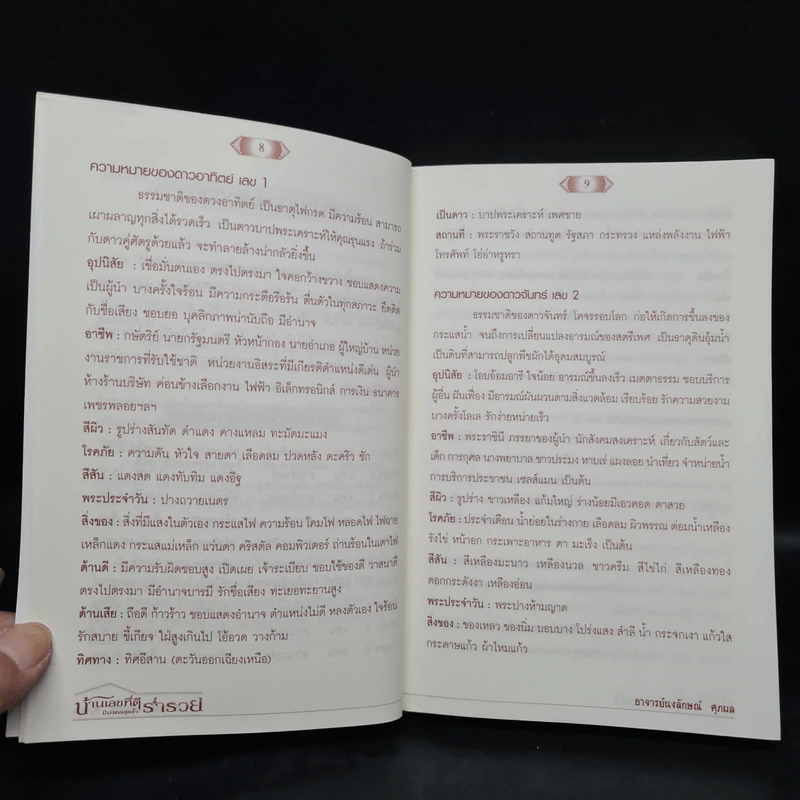 8
ความหมายของดาวอาทิตย์ เลข 1
ธรรมชาติของดวงอาทิตย์ เป็นธาตุไฟกรด มีความร้อน สามารถ
เผาผลาญทุกสิ่งได้รวดเร็ว เป็นดาวบาปพระเคราะห์ให้คุณรุนแรง ถ้าร่วม
กับดาวคู่ศัตรูด้วยแล้ว จะทำลายล้างน่ากลัวยิ่งขึ้น
อุปนิสัย : เชื่อมั่นตนเอง ตรงไปตรงมา ใจคอกว้างขวาง ชอบแสดงความ
เป็นผู้นำ บางครั้งใจร้อน มีความกระตือรือร้น ตื่นตัวในทุกสภาวะ ยึดติด
กับชื่อเสียง ชอบยอ บุคลิกภาพน่านับถือ มีอำนาจ
อาชีพ : กษัตริย์ นายกรัฐมนตรี หัวหน้ากอง นายอำเภอ ผู้ใหญ่บ้าน หน่วย
งานราชการที่รับใช้ชาติ หน่วยงานอิสระที่มีเกียรติตำแหน่งดีเด่น ผู้นำ
ห้างร้านบริษัท ค่อนข้างเลือกงาน ไฟฟ้า อิเล็กทรอนิกส์ การเงิน ธนาคาร
เพชรพลอยฯลฯ
สีผิว : รูปร่างสันทัด ดำแดง คางแหลม ทะมัดมะแมง
โรคภัย : ความดัน หัวใจ สายตา เลือดลม ปวดหลัง ตะคริว ชัก
สีสัน : แดงสด แดงทับทิม แดงอิฐ
พระประจำวัน : ปางถวายเนตร
สิ่งของ : สิ่งที่มีแสงในตัวเอง กระแสไฟ ความร้อน โคมไฟ หลอดไฟ ไฟฉาย
เหล็กแดง กระแสแม่เหล็ก แว่นตา คริสตัล คอมพิวเตอร์ ถ่านร้อนในเตาไฟ
ด้านดี : มีความรับผิดชอบสูง เปิดเผย เจ้าระเบียบ ชอบใช้ของดี วาสนาดี
ตรงไปตรงมา มีอำนาจบารมี รักชื่อเสียง ทะเยอทะยานสูง
ด้านเสีย : ถือดี ก้าวร้าว ชอบแสดงอำนาจ ตำแหน่งไม่ดี หลงตัวเอง ใจร้อน
รักสบาย ขี้เกียจ ใฝ่สูงเกินไป โอ้อวด วางก้าม
ทิศทาง : ทิศอีสาน (ตะวันออกเฉียงเหนือ)
บ้านเลขที่ดี ร่ำรวย
9
เป็นดาว : บาปพระเคราะห์ เพศชาย
สถานที่ : พระราชวัง สถานทูต รัฐสภา กระทรวง แหล่งพลังงาน ไฟฟ้า
โทรศัพท์ โอ่อ่าหรูหรา
ความหมายของดาวจันทร์ เลข 2
ธรรมชาติของดาวจันทร์ โคจรรอบโลก ก่อให้เกิดการขึ้นลงของ
กระแสน้ำ จนถึงการเปลี่ยนแปลงอารมณ์ของสตรีเพศ เป็นธาตุดินอุ้มน้ำ
เป็นดินที่สามารถปลูกพืชผักได้อุดมสมบูรณ์
อุปนิสัย : โอบอ้อมอารี ใจน้อย อารมณ์ขึ้นลงเร็ว เมตตาธรรม ชอบบริการ
ผู้อื่น ฝันเฟื่อง มีอารมณ์ผันผวนตามสิ่งแวดล้อม เรียบร้อย รักความสวยงาม
บางครั้งโลเล รักง่ายหน่ายเร็ว
อาชีพ : พระราชินี ภรรยาของผู้นำ นักสังคมสงเคราะห์ เกี่ยวกับสัตว์และ
เด็ก การกุศล นางพยาบาล ชาวประมง หาบเร่ แผงลอย นำเที่ยว จำหน่ายน้ำ
การบริการประชาชน เซลส์แมน เป็นต้น
สีผิว : รูปร่าง ขาวเหลือง แก้มใหญ่ ร่างน้อยมีเอวคอด ตาสวย
โรคภัย : ประจำเดือน น้ำย่อยในร่างกาย เลือดลม ผิวพรรณ ต่อมน้ำเหลือง
รังไข่ หน้าอก กระเพาะอาหาร ตา มะเร็ง เป็นต้น
สีสัน : สีเหลืองมะนาว เหลืองนวล ขาวครีม สีไข่ไก่ สีเหลืองทอง
ดอกกระดังงา เหลืองอ่อน
พระประจำวัน : พระปางห้ามญาต
สิ่งของ : ของเหลว ของนิ่ม บอบบาง โปร่งแสง สำลี น้ำ กระจกเงา แก้วใส
กระดาษแก้ว ผ้าไหมแก้ว
อาจารย์นงลักษณ์ ศุภผล